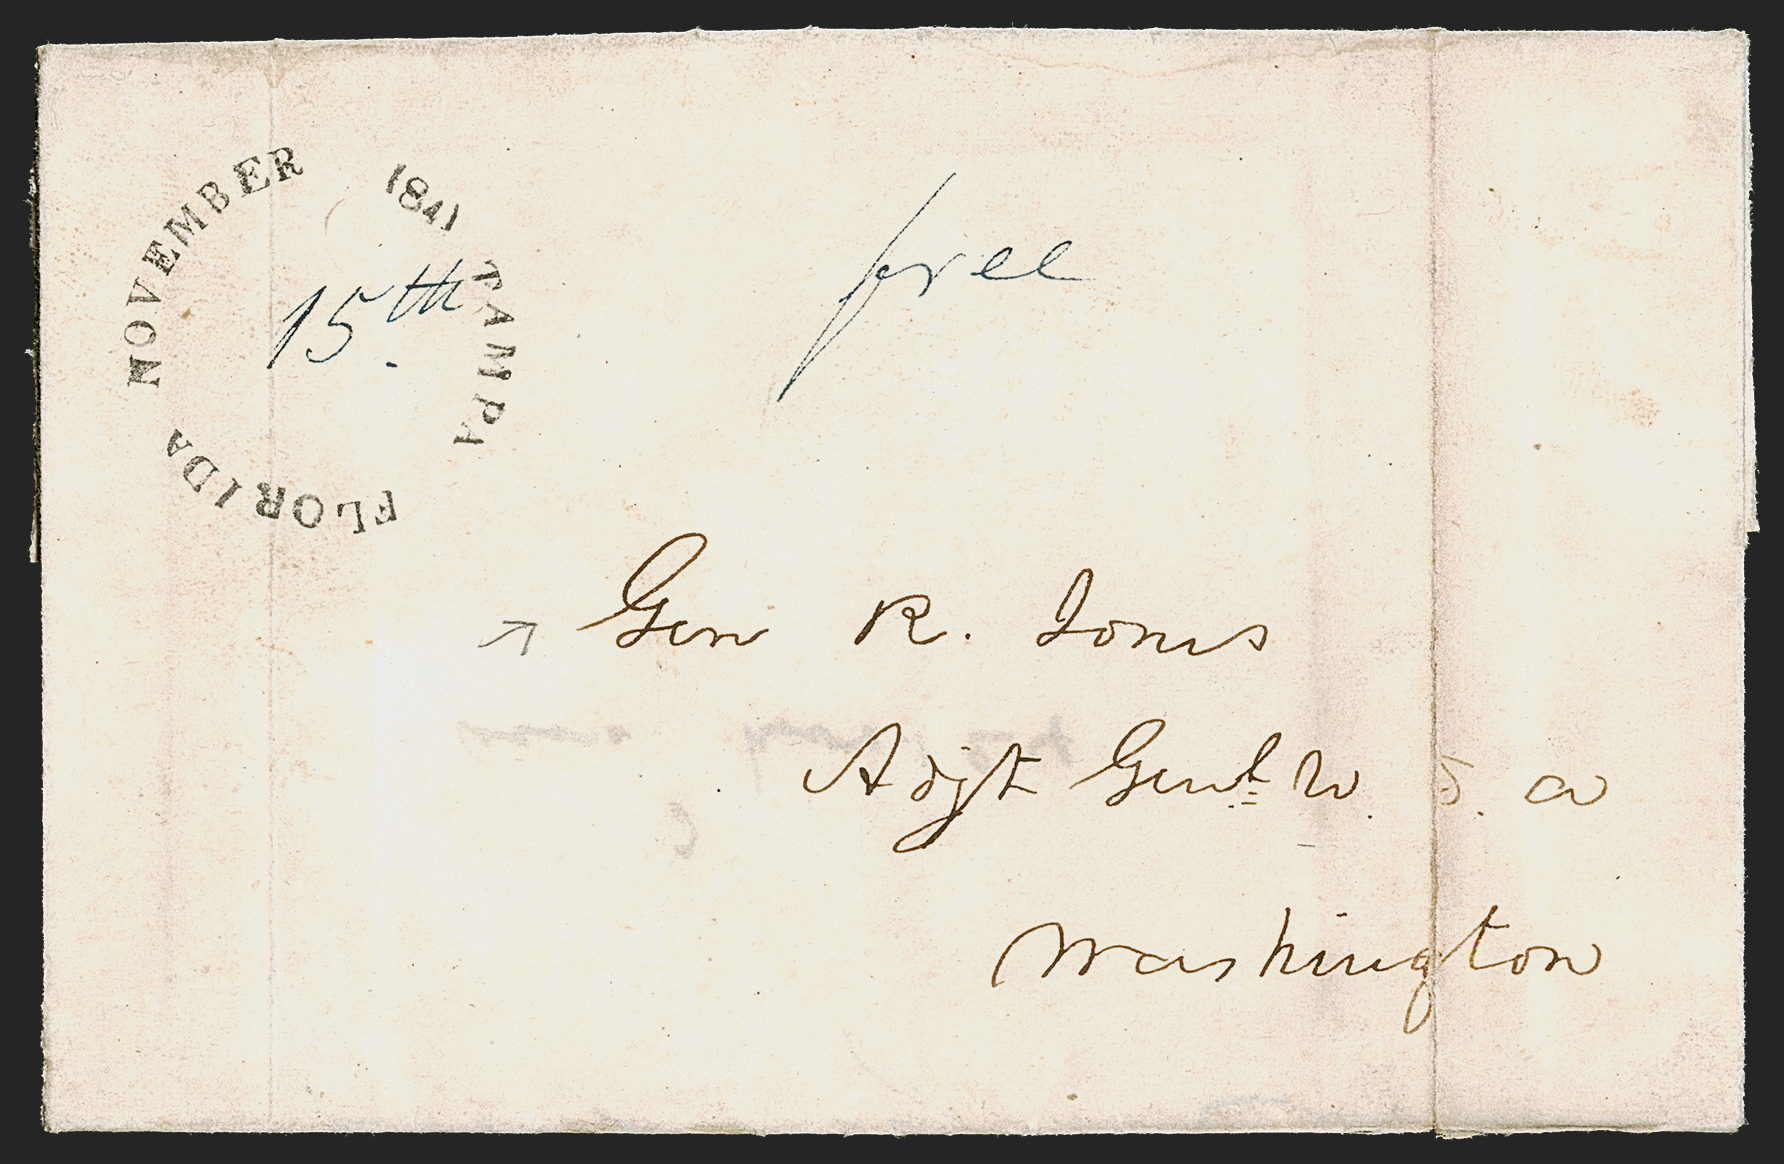 NOVEMBER 1841 TAMPA FLORIDA
15th.
free
Gen R. Jones
Adjt Genl U. S. A
Washington